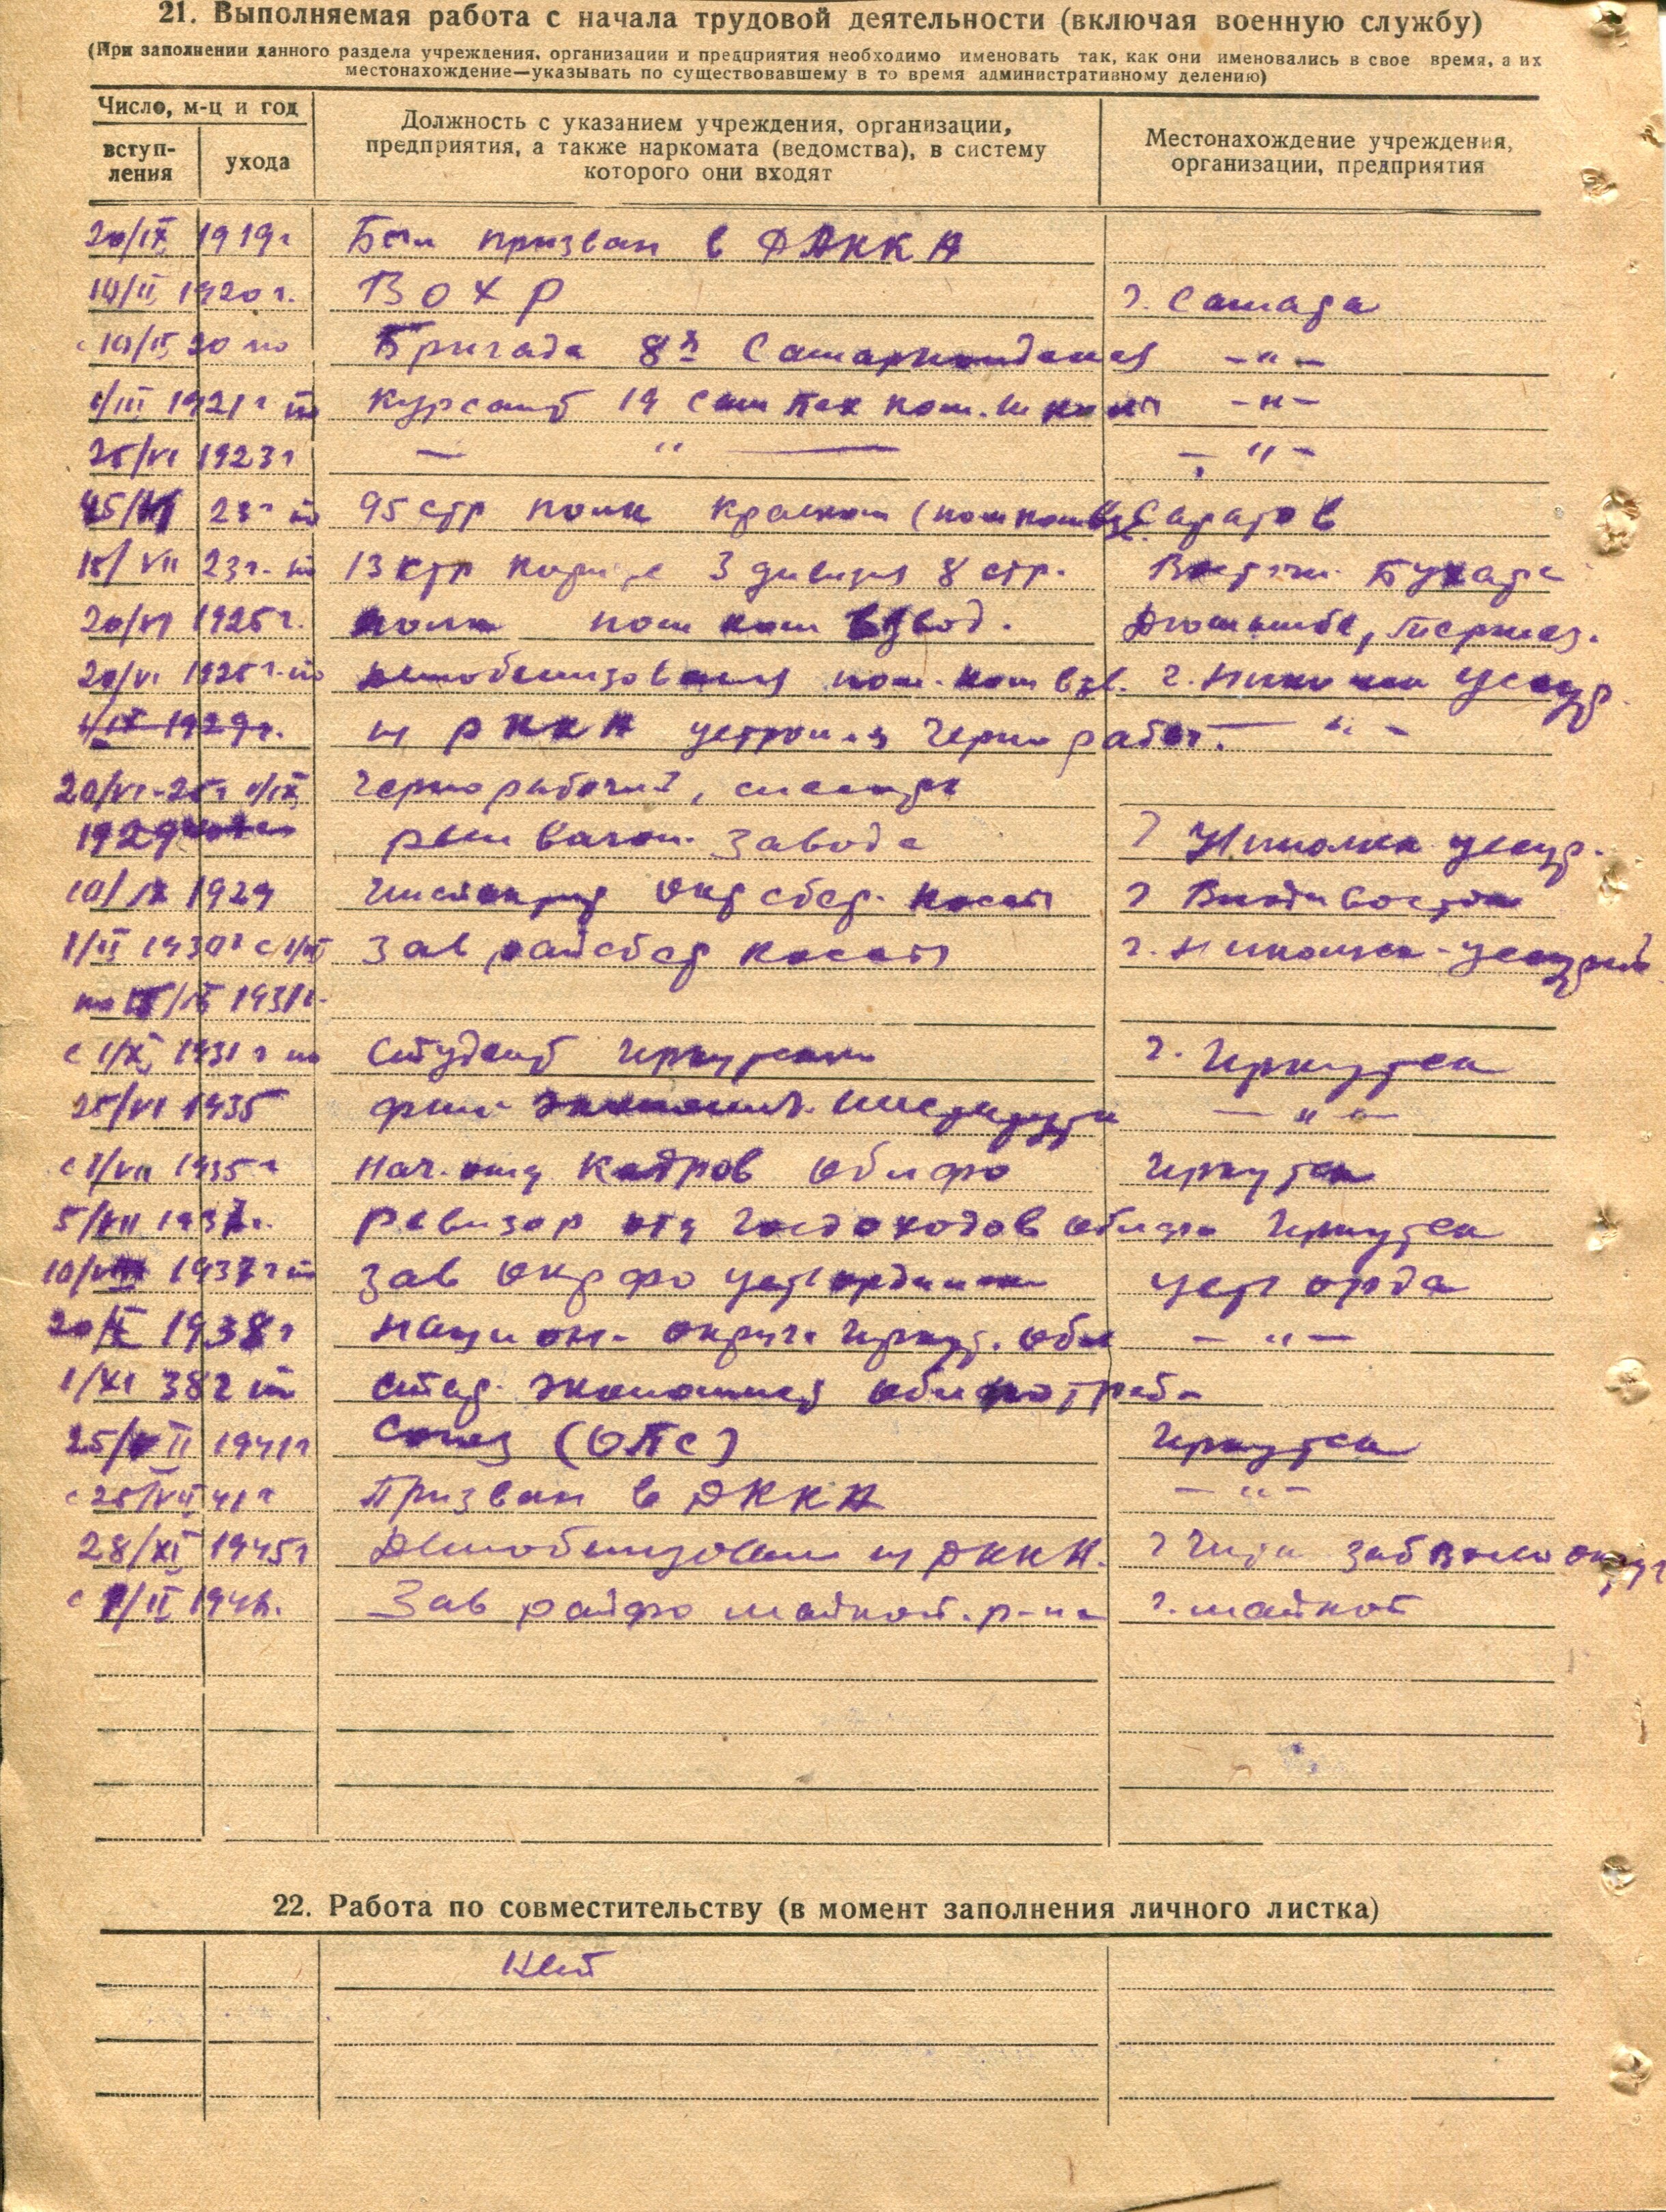 21. Выполняемая работа с начала трудовой деятельности (включая военную службу)
(При заполнении данного раздела учреждения, организации и предприятия необходимо именовать так, как они именовались в свое время, а их
местонахождение—указывать по существовавшему в то время административному делению)
Число, м-ц и год
вступ-
ления
ухода
Должность с указанием учреждения, организации,
предприятия, а также наркомата (ведомства), в систему
которого они входят
Местонахождение учреждения,
организации, предприятия
20/IX 1919г Был призван в РККА
10/II 1920г. ВОХР г. Самара
с 10/II 20 по Бригада 8я —"—
1/III 1921г по Курсант 19 Сам Пех ком. школы —"—
25/VI 1923г — " — — " —
23г по 95 стр полк Краском (пом ком вз) Саратов
15/VII 23г. по 13 стр 3 дивизия 8 стр. Бухара
20/VI 1925г. полк пом ком взвод. Дюшамбе, Термез.
20/VI 1925г. по демобилизовался пом. ком взв. г. Никольск Уссур.
1/IX 1929г. из РККА устроился Чернорабоч. — " —
20/VI-25г 1/IX Чернорабочий, слесарь
1929 вагон. завода г Никольск Уссур.
10/IX 1929 Инспектор Окр сбер. кассы г Владивосток
1/II 1930г с 1/II Зав райсбер кассы г. Никольск-Уссурий
по /IX 1931г.
с 1/X 1931г по Студент Иркутского г. Иркутск
25/VI 1935 фин- экономич. института — " —
с 1/VII 1935г Нач. отд кадров Облфо Иркутск
5/VII 1937г. Ревизор отд Госдоходов Облфо Иркутск
10/VII 1937г по Зав Окрфо Усть Орда
20/X 1938г Национ- округа Иркут. обл — " —
1/XI 38г по Стар. экономист
25/VII 1941г Союз (ОПС) Иркутск
с 25/VII 41г Призван в РККА — " —
28/XI 1945г Демобилизован из РККА. г Чита округ
с 1/II 1946. Зав райфо Майкоп. р-на г. Майкоп
22. Работа по совместительству (в момент заполнения личного листка)
Нет